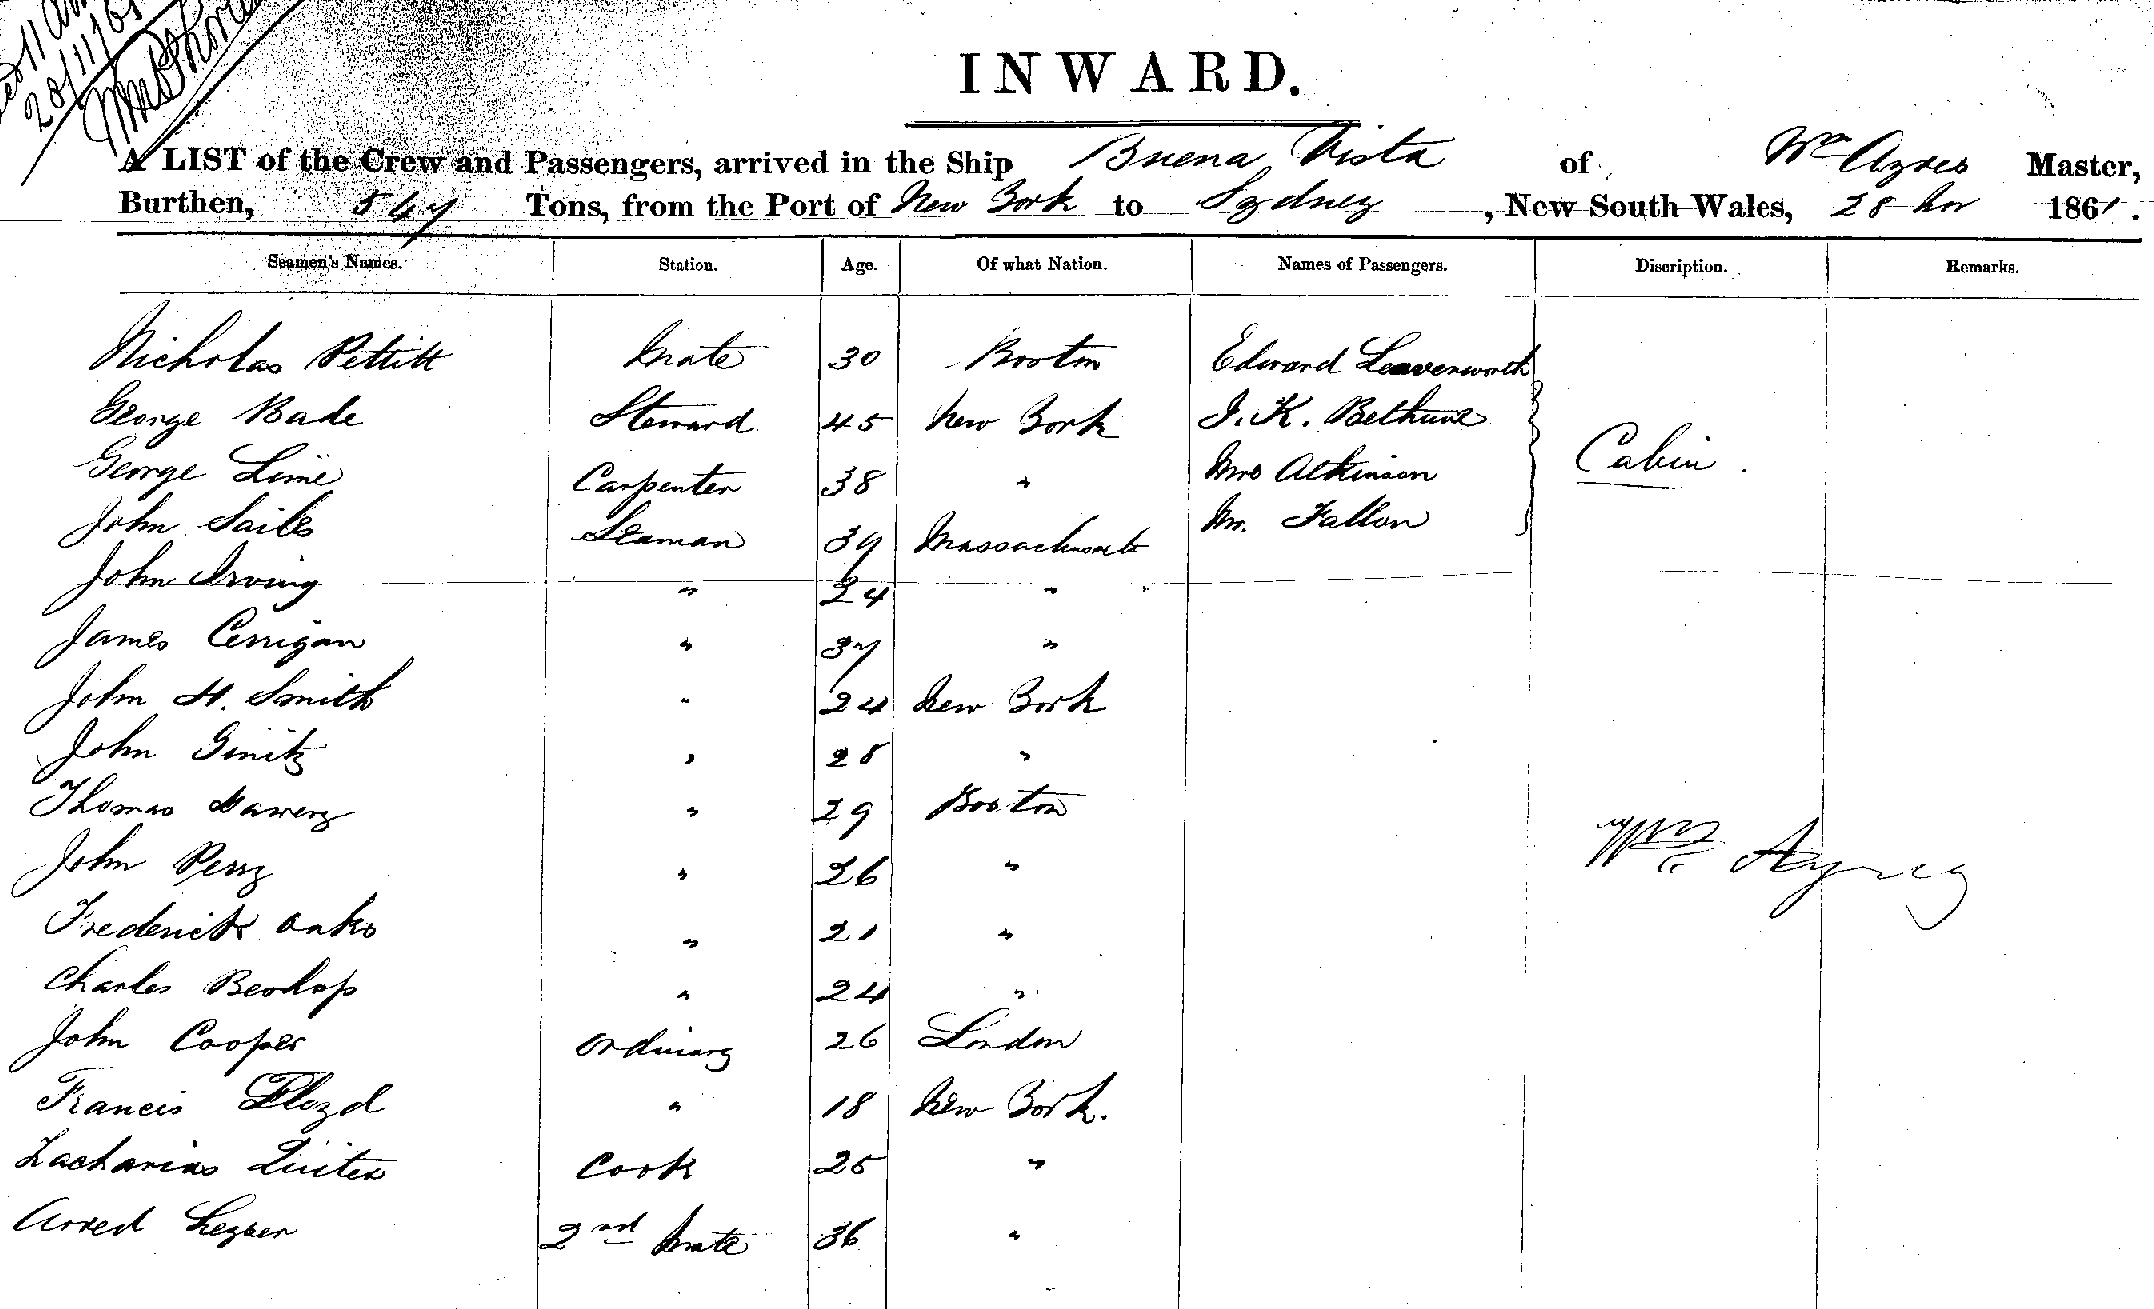 20/11/61
INWARD.
A LIST of the Crew and Passengers, arrived in the Ship Buena Vista of Wm Ayres Master,
Burthen, 547 Tons, from the Port of New York to Sydney, New South Wales, 28 Nov 1861.
Seamen's Names. Station. Age. Of what Nation. Names of Passengers. Discription. Remarks.
Nicholas Pettitt Mate 30 Boston Edward Leavenworth
George Bade Steward 45 New York J. K. Bethune
George Lime Carpenter 38 " Mrs Atkinson Cabin.
John Sails Seaman 39 Massachusets Mr. Fallon
John Irving " 24 "
James Cerrigan " 37 "
John H. Smith " 24 New York
John Ginitz " 28 "
Thomas 29 Boston
John Perry " 26 "
Wm Ayres
Frederick Anks " 21 "
Charles " 24 "
John Cooper Ordinary 26 London
Francis Floyd " 18 New York.
Zacharias Cook 25 "
2nd Mate 36 "